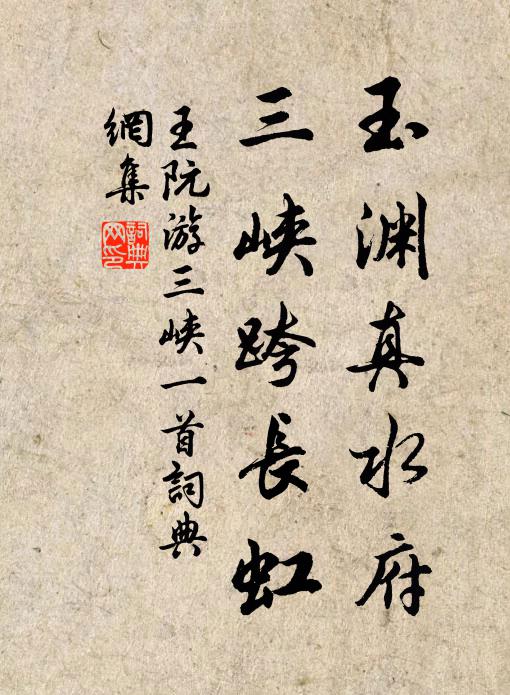 玉渊真水府
三峡跨長虹
王阮游三峡一首詞典
網集
詞典
网印